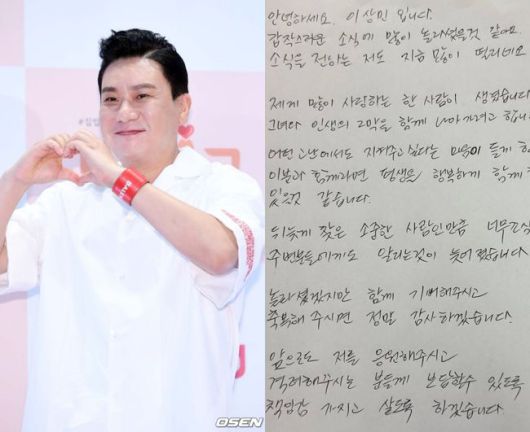 안녕하세요. 이상민 입니다.
갑작스러운 소식에 많이 놀라셨을것 같아요.
소식을 전하는 저도 지금 많이 떨리네요
제게 많이 사랑하는 한 사람이 생겼습니다
그녀와 인생의 2막을 함께 나아가려고 합니
어떤 고난에서도 지켜주고싶다는 마음이 들게 하
이분과 함께라면 평생을 행복하게 함께 할
있을것 같습니다.
뒤늦게 찾은 소중한 사람인만큼 너무
주변분들에게까도 알리는것이 늦어졌습니다
놀라셨겠지만 함께 기뻐해주시고
축복해 주시면 정말 감사하겠습니다.
앞으로도 저를 응원해주시고
격려해주시는 분들께 보답할수 있도록
책임감 가지고 살도록 하겠습니다
OSEN